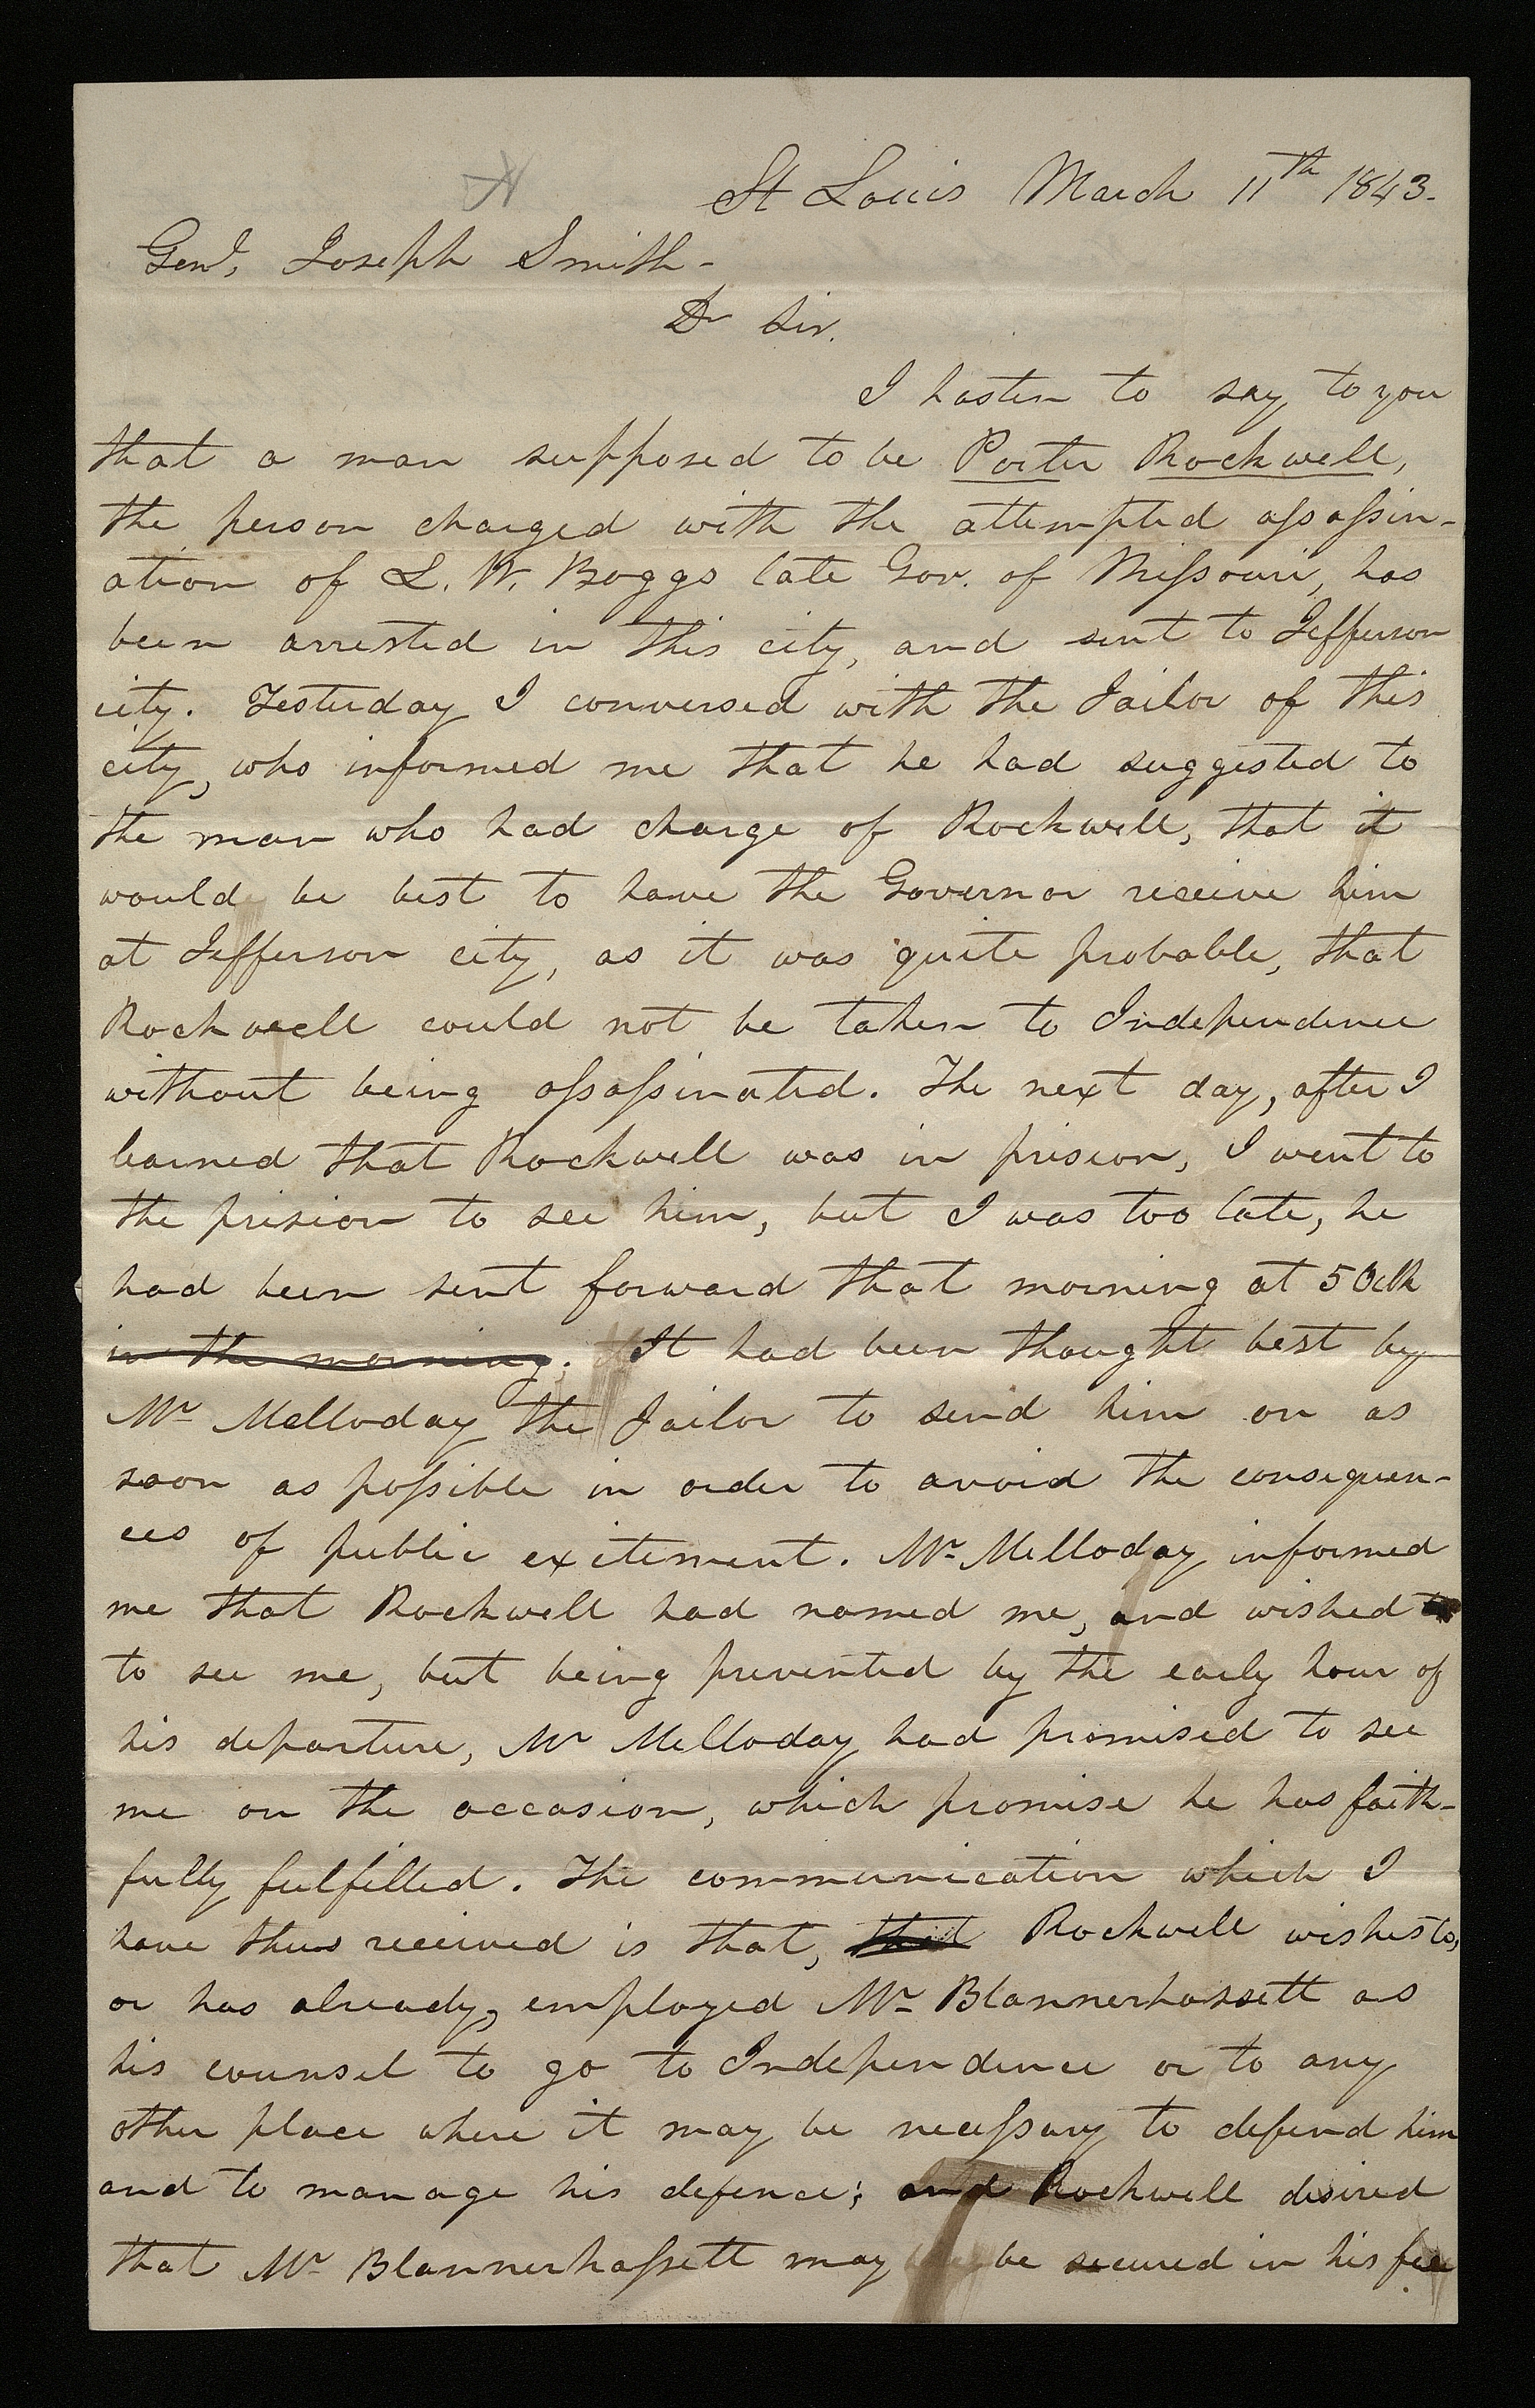 St Louis March 11th 1843.
Genl, Joseph Smith-
Dr Sir.
I hasten to say to you
that a man supposed to be Porter Rockwell,
the person charged with the attempted assassin-
ation of L. W. Boggs late Gov. of Missouri, has
been arrested in this city, and sent to Jefferson
city. Yesterday I conversed with the Jailor of this
city, who informed me that he had suggested to
the man who had charge of Rockwell, that it
would be best to have the Governor receive him
at Jefferson city, as it was quite probable, that
Rockwell could not be taken to Independence
without being assassinated. The next day, after I
learned that Rockwell was in prision, I went to
the prision to see him, but I was too late, he
had been sent forward that morning at 5 Oclk
in the morning. It had been thought best by
Mr Melloday the Jailor to send him on as
soon as possible in order to avoid the consequen-
ces of public excitement. Mr Melloday informed
me that Rockwell had named me, and wished
to see me, but being prevented by the early hour of
his departure, Mr Melloday had promised to see
me on the occasion, which promise he has faith-
fully fulfilled. The communication which I
have thus received is that, that Rockwell wishes to,
or has already, employed Mr Blannerhassett as
his counsel to go to Independence or to any
other place where it may be necessary to defend him
and to manage his defence; and Rockwell desired
that Mr Blannerhassett may be secured in his fee